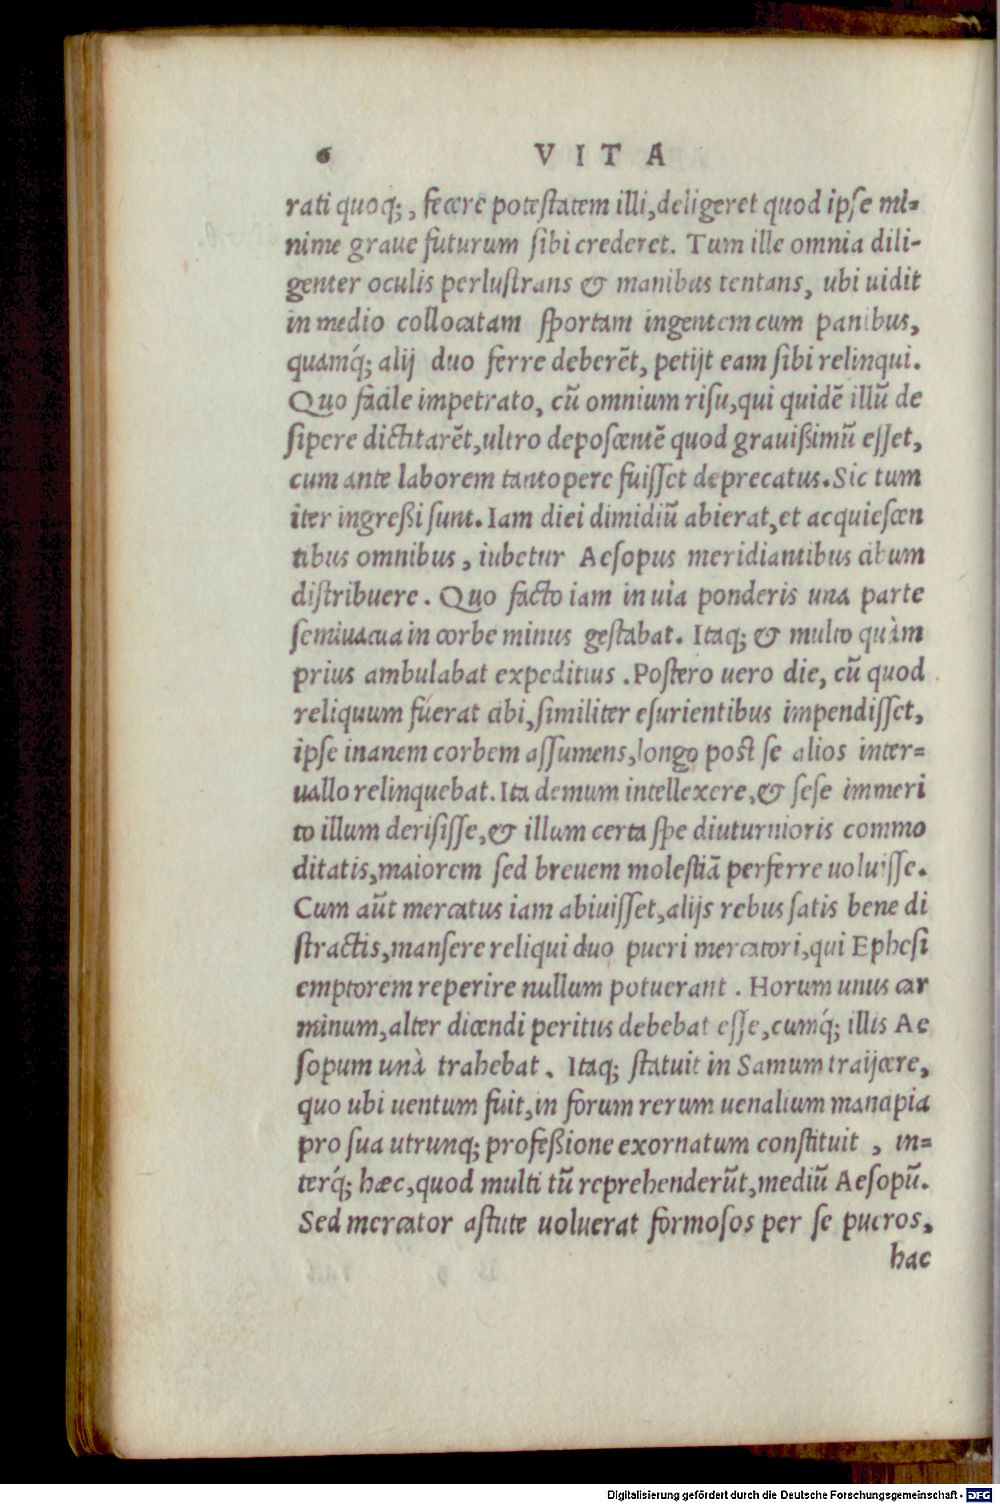 6 VITA
rati quoq;, fecere potestatem illi, deligeret quod ipse mi=
nime graue futurum sibi crederet. Tum ille omnia dili-
genter oculis perlustrans & manibus tentans, ubi uidit
in medio collocatam sportam ingentem cum panibus,
quamq́; alij duo ferre deberẽt, petijt eam sibi relinqui.
Quo facile impetrato, cũ omnium risu, qui quidẽ illũ de
sipere dictitarẽt, ultro deposcentẽ quod grauißimũ esset,
cum ante laborem tantopere fuisset deprecatus. Sic tum
iter ingreßi sunt. Iam diei dimidiũ abierat, et acquiescen
tibus omnibus, iubetur Aesopus meridiantibus cibum
distribuere. Quo facto iam in uia ponderis una parte
semiuacua in corbe minus gestabat. Itaq; & multo quàm
prius ambulabat expeditius. Postero uero die, cũ quod
reliquum fuerat cibi, similiter esurientibus impendisset,
ipse inanem corbem assumens, longo post se alios inter=
uallo relinquebat. Ita demum intellexere, & sese immeri
to illum derisisse, & illum certa spe diuturnioris commo
ditatis, maiorem sed breuem molestiã perferre uoluisse.
Cum aũt mercatus iam abiuisset, alijs rebus satis bene di
stractis, mansere reliqui duo pueri mercatori, qui Ephesi
emptorem reperire nullum potuerant. Horum unus car
minum, alter dicendi peritus debebat esse, cumq́; illis Ae
sopum unà trahebat. Itaq; statuit in Samum traijcere,
quo ubi uentum fuit, in forum rerum uenalium mancipia
pro sua utrunq; profeßione exornatum constituit, in=
terq́; hæc, quod multi tũ reprehenderũt, mediũ Aesopũ.
Sed mercator astute uoluerat formosos per se pueros,
hac
Digitalisierung gefördert durch die Deutsche Forschungsgemeinschaft - DFG